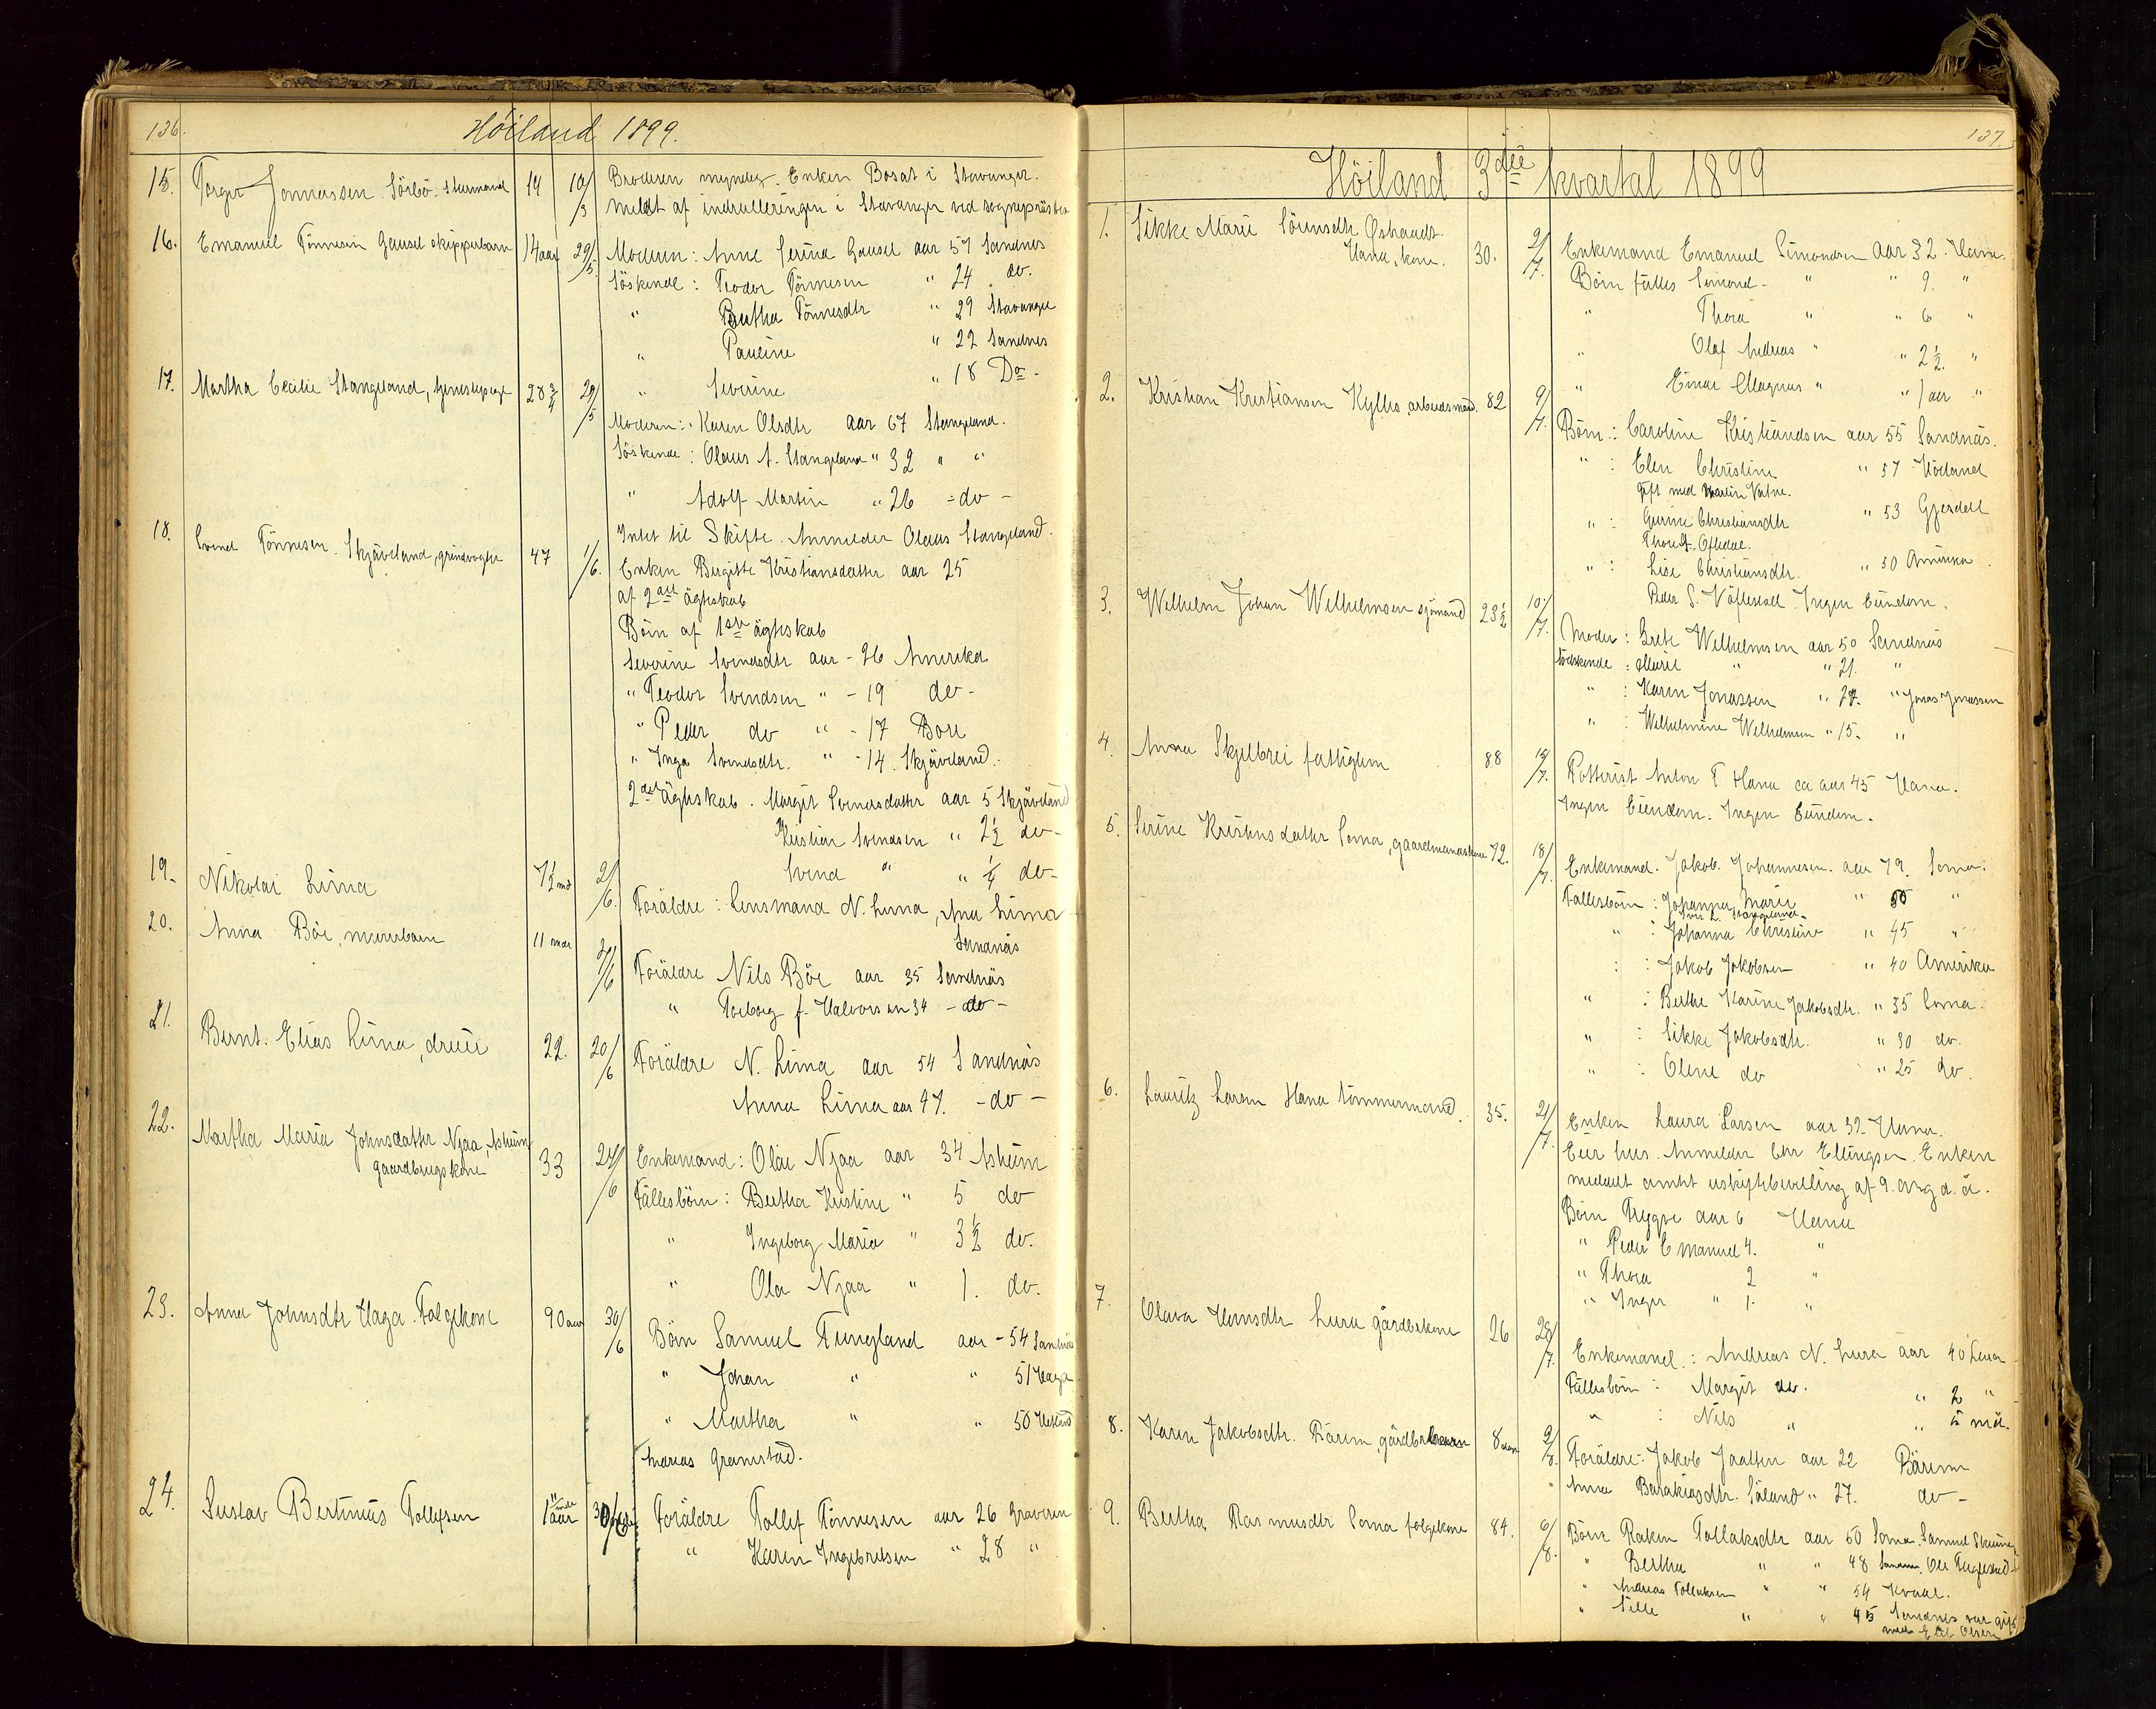 136.
Höiland 1899.
15. Torger Jonnassen Sörbö. Sturmand 19 10/3 Broderen myndig. Enken Bosat i Stavanger.
meldt af indrulleringen i Stavanger ved sogneprästen
16. Emanuel Tönnesen Gausel skipperbarn 14 aar 29/5 Moderen: Anne Serina Gausel aar 57 Sandnes
Söskende: Teodor Tönnesen " 24 do.
" Bertha Tönnesdtr " 29 Stavanger
" Pauline " 22 Sandnes
" Severine " 18 Do -
17. Martha Cecilie Stangeland, 28 3/4 29/5
Moderen: Karen Olsdtr aar 67 Stangeland.
Söskende: Olaus A. Stangeland " 32 " "
" Adolf Martin " 26 - do -
Intet til Skifte. Anmelder Olaus Stangeland.
18. Svend Tönnesen Skjäveland, grindvogter 47 1/6. Enken Birgitte Kristiansdatter aar 25
af 2det ägteskab
Börn af 1ste ägteskab
Severine Svendsdtr aar - 26 Amerika
" Teodor Svendsen " - 19 do -
" Peder do " - 17 Bore
" Inga Svendsdtr. " - 14. Skjäveland.
2det Ägteskab. Margit Svendsdatter aar 5 Skjäveland
Kristian Svendsen " 2 1/2 do -
Svend " " 1/4 do -
19. Nikolai Lima 7 1/2 md 2/6. Foräldre: Lensmand N. Lima, Ana Lima
Sandnäs
20. Anna Böe, murerbarn 11 mdr 20/6 Foräldre Nils Böe aar 35 Sandnäs
" Torborg f. Halvorsen 34 - do -
21. Bernt. Elias Lima, dreier 22. 20/6 Foräldre N. Lima aar 54 Sandnäs
Anna Lima aar 47. - do -
22. Martha Maria Johnsdatter Njaa, Asheim
gaardbrugskone 33 27/6 Enkemand: Olai Njaa aar 34 Asheim
Fällesbörn: Bertha Kristine " 5 do
" Ingeborg Maria " 3 1/2 do.
" Ola Njaa " 1. do.
23. Anna Johnsdtr Haga. Folgekone 90 aar 30/6 Börn Samuel Tungland aar - 54 Sandnäs
" Johan " " 51 Haga
" Martha " " 50 Hetland
Andreas Gramstad.
24. Gustav Bertinius Tollefsen 1 aar 30/6 Foräldre Tollef Tönnesen aar 26 Graveren
" Karen Ingebretsen " 28 "
137.
Höiland 3die kvartal 1899
1. Sikke Marie Sörensdtr Østraadt.
Hana, kone. 30. 2/7. Enkemand Emanuel Simondsen aar 32. Hana.
Börn fälles Simond - " " 9. "
" Thora " " 6 "
" Olaf Andreas " " 2 1/2. "
" Einar Magnus " " 1 aar "
2. Kristian Kristiansen Kylles, arbeidsmand. 82 9/7. Börn: Caroline Kristiandsen aar 55 Sandnäs.
" : Elen Christine " 57 Höiland
Gift med Martin Vatne.
" : Gurine Christiansdtr " 53 Gjesdal
Thore T. Oftedal.
" : Lise Christiansdtr. " 50 Amerika.
Peder S. Ingen Eiendom.
3. Wilhelm Johan Wilhelmsen sjömand 23 1/2 10/7. Moder: Grete Wilhelmsen aar 50 Sandnäs
södskende: Marie " " 21. "
" : Karen Jonassen " 27. " Jonas Jonassen
" : Wilhelmine Wilhelmsen " 15. "
4. Anna Skjelbrei fattiglem 88 Anton T Hana ca aar 45 Hana.
Ingen Eiendom. Ingen Eiendom.
5. Serine Kristensdatter Soma, gaardmandskone 72. 18/7. Enkemand. Jakob Johannesen. aar 79. Soma.
Fällesbörn: Johanna Marie " 50 "
" : Johanna Christine " 45 "
: : Jakob Jakobsen " 40 Amerika
" : Berthe Karine Jakobsdtr. " 35 Soma.
" : Sikke Jakobsdtr. " 30 do.
" : Olene do " 25 do.
6. Lauritz Larsen Hana tömmermand. 35. 21/7. Enken Laura Larsen aar 32 Hana.
Eier hus. Anmelder Chr Ellingsen. Enken
meddelt amtet uskiftebevilling af 9. aug d. å.
Börn Trygve aar 6 Hana
" Peder Emanuel 4. "
" Thora 2 "
" Inger " 1. "
7. Olava Hansdtr Lura gårdbskone 26 28/7. Enkemand: Andreas N. Lura aar 40 Lura
Fällesbörn: Margit do. " 2 "
" : Nils " " 5 md.
8. Karen Jakobsdtr. Bärem, gårdbr. 8 2/8. Foräldre: Jakob Jaatten aar 22 Bärem
Anna Barakiasdtr. Söland " 27. do -
9. Bertha Rasmusdtr Soma folgekone 84. 6/8. Börn Raken Tollaksdtr aar 50 Soma. Samuel
" Bertha " " 48
" Andreas Tollaksen " " 54 Kvaal.
" Sille " " 45 Sandnes var gift
med Eilt Olsen